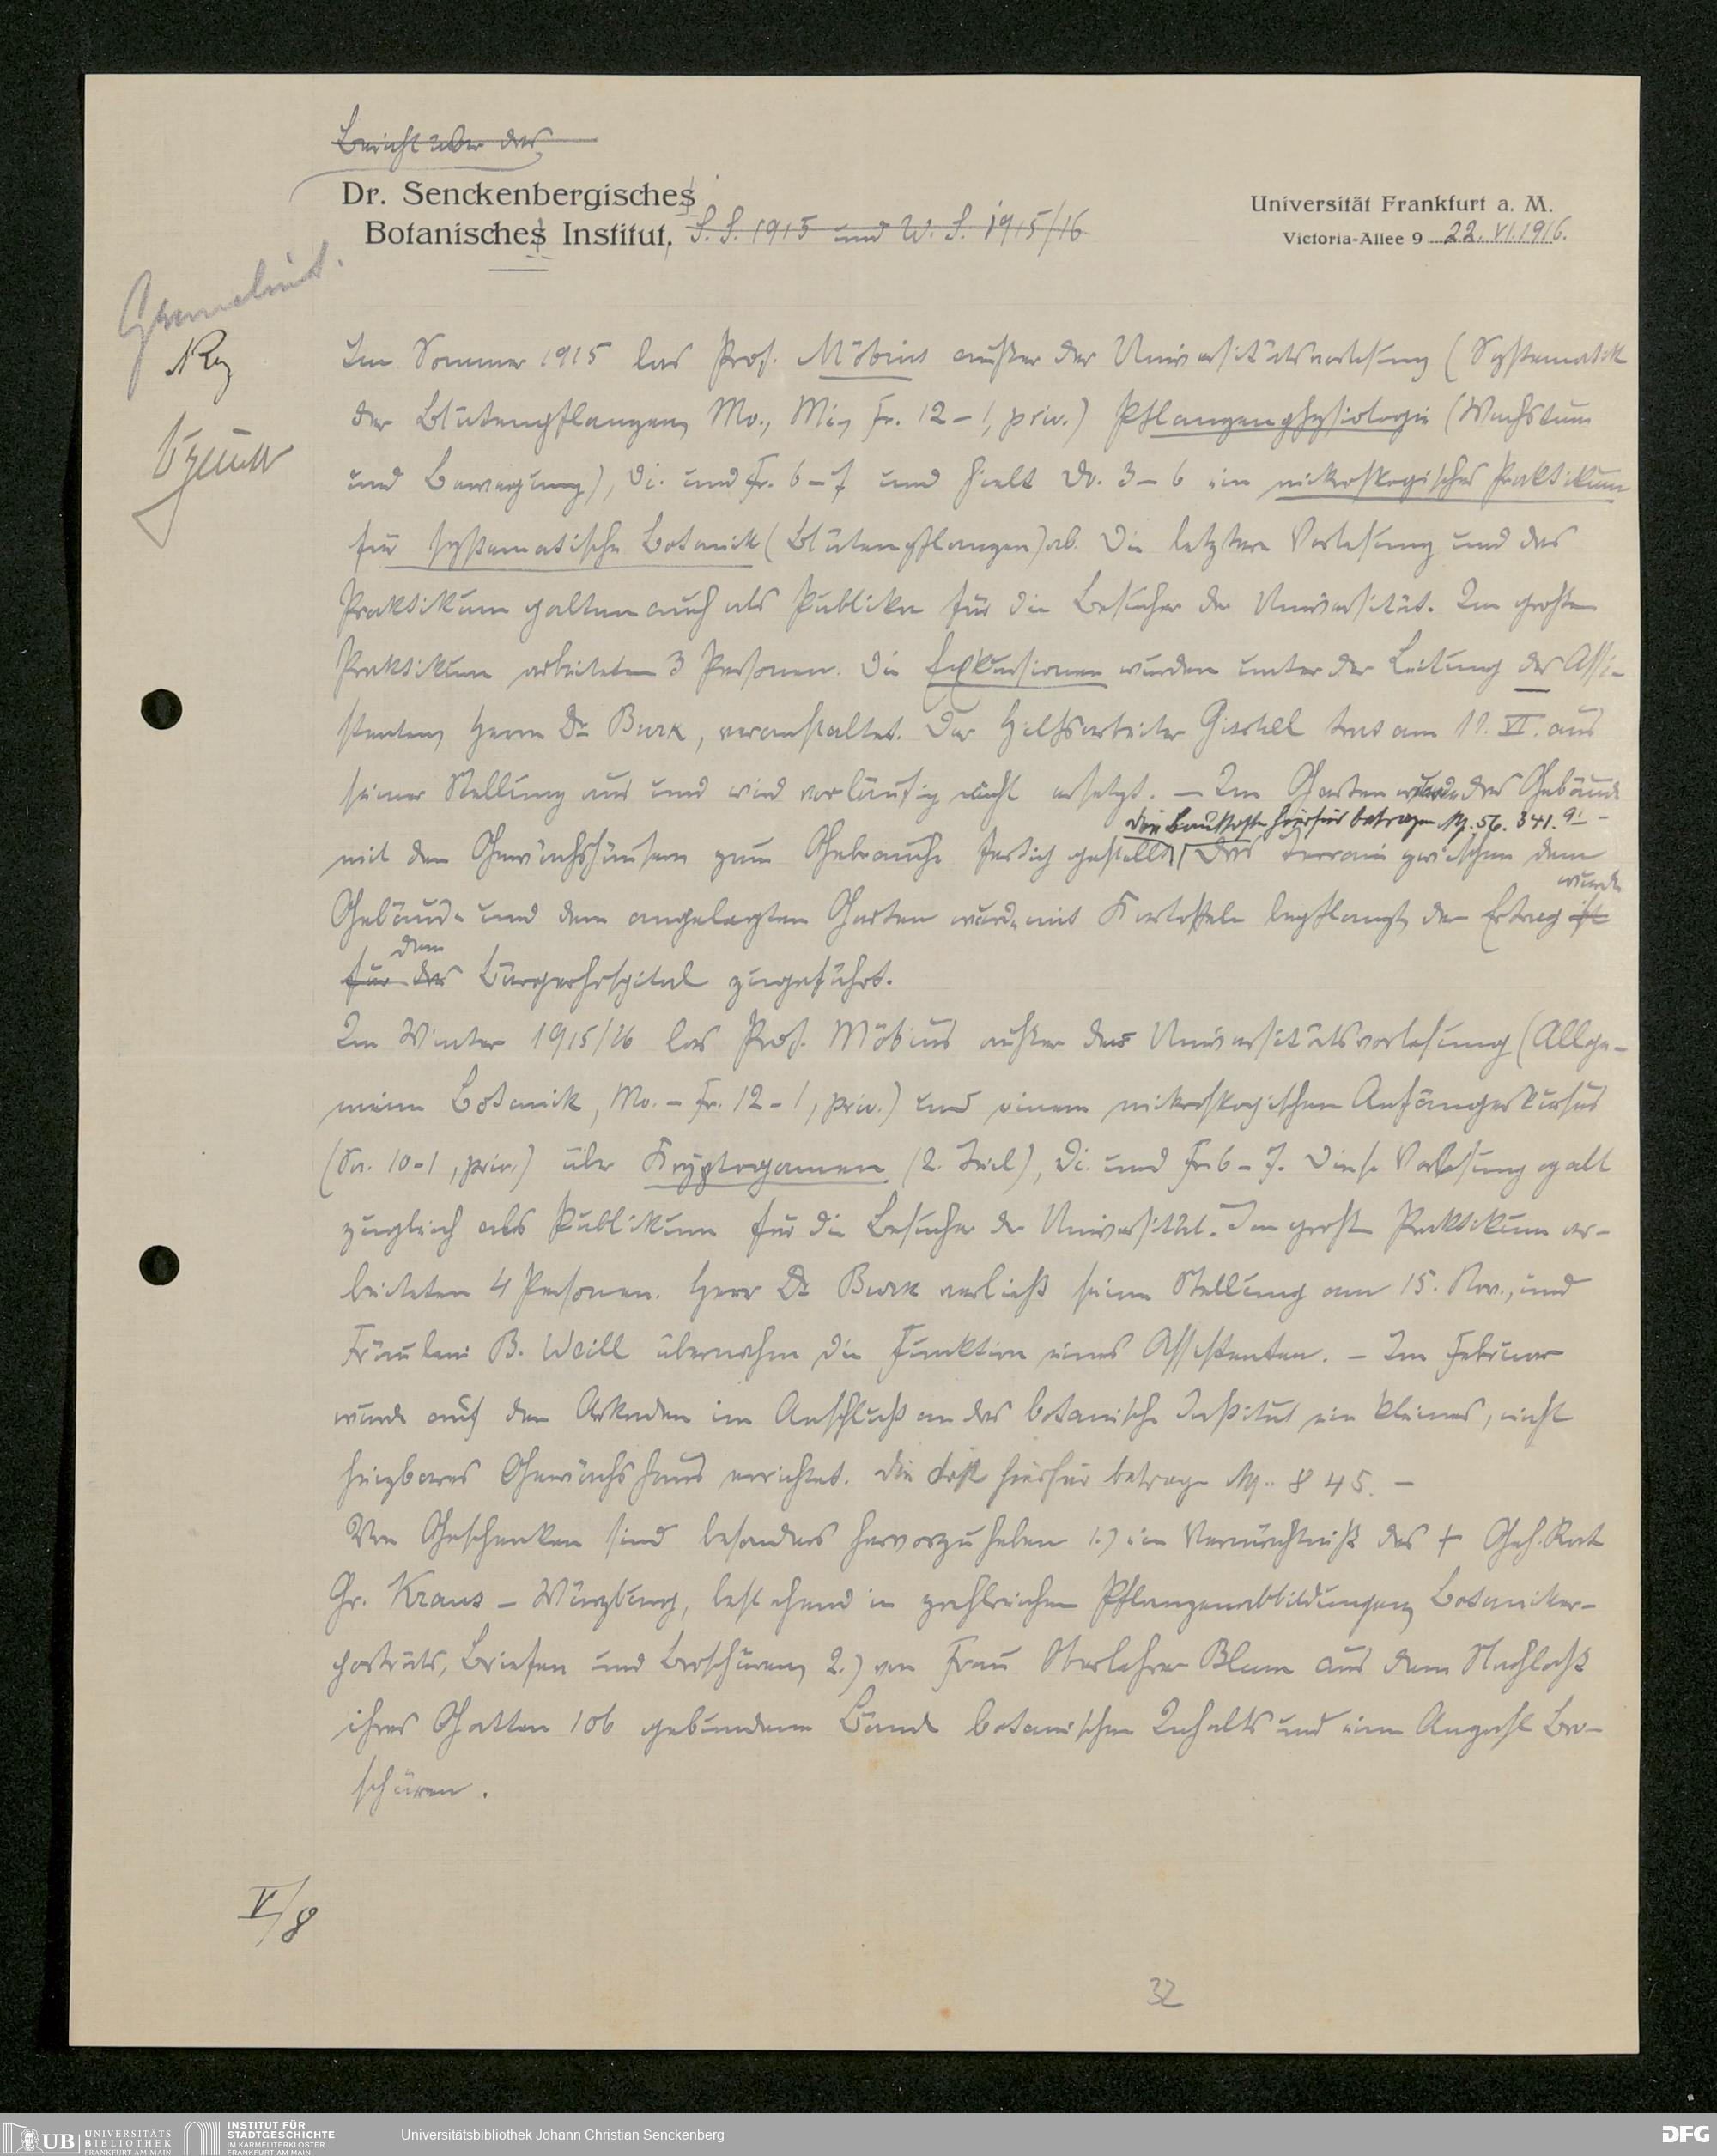 Bericht über das
Dr. Senckenbergisches
Botanisches Institut, S. S. 1915 und W. S. 1915/16
Universität Frankfurt a. M.
Victoria-Allee 9 22. VI. 1916.
Im Sommer 1915 las Prof. Möbius außer der Universitätsvorlesung (Systematik
der Blütenpflanzen, Mo., Mi., Fr. 12–1, priv.) Pflanzenphysiologie (Wachstum
und Bewegung), Di. und Fr. 6–7 und hielt Do. 3–6 ein mikroskopisches Praktikum
für systematische Botanik (Blütenpflanzen) ab. Die letztere Vorlesung und das
Praktikum galten auch als Publika für die Besucher der Universität. Im großen
Praktikum arbeiteten 3 Personen. Die Exkursionen wurden unter der Leitung des Assi-
stenten, Herrn Dr. Burk, veranstaltet. Der Hilfsarbeiter Gischel trat am 11. VI. aus
seiner Stellung aus und wird vorläufig nicht ersetzt. – Im Garten wurde das Gebäude
die Baukosten hierfür betragen M. 56. 341. 91 –
mit den Gewächshäusern zum Gebrauche fertig gestellt, Das Terrain zwischen dem
wurde
Gebäude und dem angelegten Garten wurde mit Kartoffeln bepflanzt, der Ertrag ist
dem
für das Bürgerhospital zugeführt.
Im Winter 1915/16 las Prof. Möbius außer der Universitätsvorlesung (Allge-
meine Botanik, Mo. – Fr. 12–1, priv.) und einem mikroskopischen Anfängerkursus
(Sa. 10–1, priv.) über Kryptogamen (2. Teil), Di. und Fr. 6–7. Diese Vorlesung galt
zugleich als Publikum für die Besucher der Universität. Im großen Praktikum ar-
beiteten 4 Personen. Herr Dr. Burk verließ seine Stellung am 15. Nov., und
Fräulein B. Weill übernahm die Funktion eines Assistenten. – Im Februar
wurde auf den Arkaden im Anschluß an das botanische Institut ein kleines, nicht
heizbares Gewächshaus errichtet. Die Kosten hierfür betragen M. 845. –
Von Geschenken sind besonders hervorzuheben 1.) ein Vermächtniß des † Geh. Rat
Gr. Kraus – Würzburg, bestehend in zahlreichen Pflanzenabbildungen, Botaniker-
porträts, Briefen und Broschüren, 2.) von Frau Oberlehrer Blum aus dem Nachlaß
ihres Gatten 106 gebundene Bände botanischen Inhalts und eine Anzahl Bro-
schüren.
V/8
32
UB UNIVERSITÄTS BIBLIOTHEK FRANKFURT AM MAIN
INSTITUT FÜR STADTGESCHICHTE IM KARMELITERKLOSTER FRANKFURT AM MAIN
Universitätsbibliothek Johann Christian Senckenberg
DFG